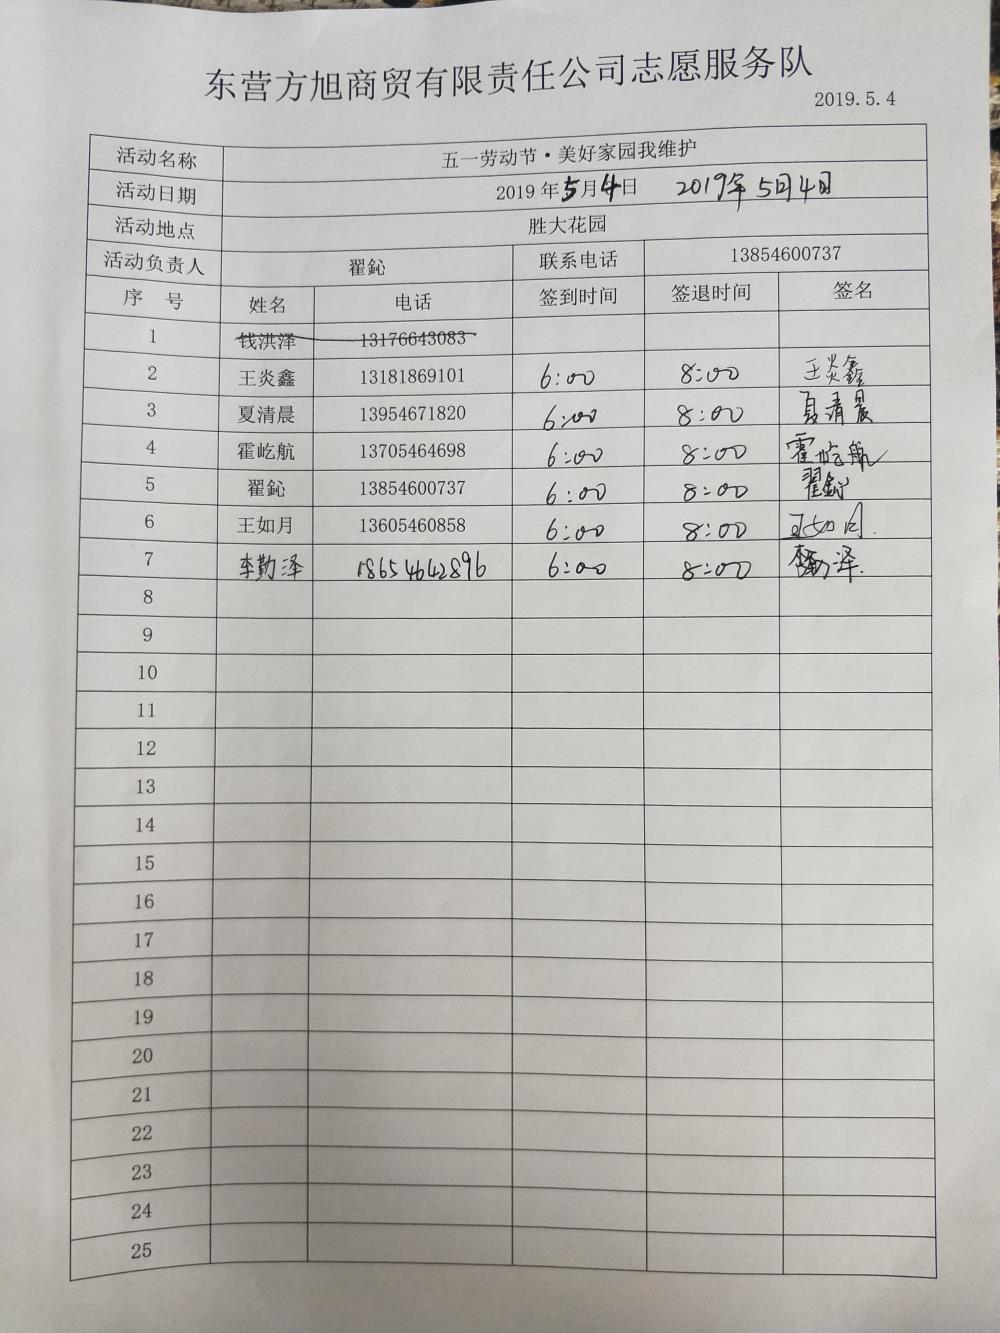 东营方旭商贸有限责任公司志愿服务队
2019.5.4
活动名称 五一劳动节·美好家园我维护
活动日期 2019年5月4日 2019年5月4日
活动地点 胜大花园
活动负责人 翟鈊 联系电话 13854600737
序 号 姓名 电话 签到时间 签退时间 签名
1 钱洪泽 13176643083
2 王炎鑫 13181869101 6:00 8:00 王炎鑫
3 夏清晨 13954671820 6:00 8:00 夏清晨
4 霍屹航 13705464698 6:00 8:00 霍屹航
5 翟鈊 13854600737 6:00 8:00 翟鈊
6 王如月 13605460858 6:00 8:00 王如月
7 李勤泽 18654642896 6:00 8:00 李勤泽
8
9
10
11
12
13
14
15
16
17
18
19
20
21
22
23
24
25